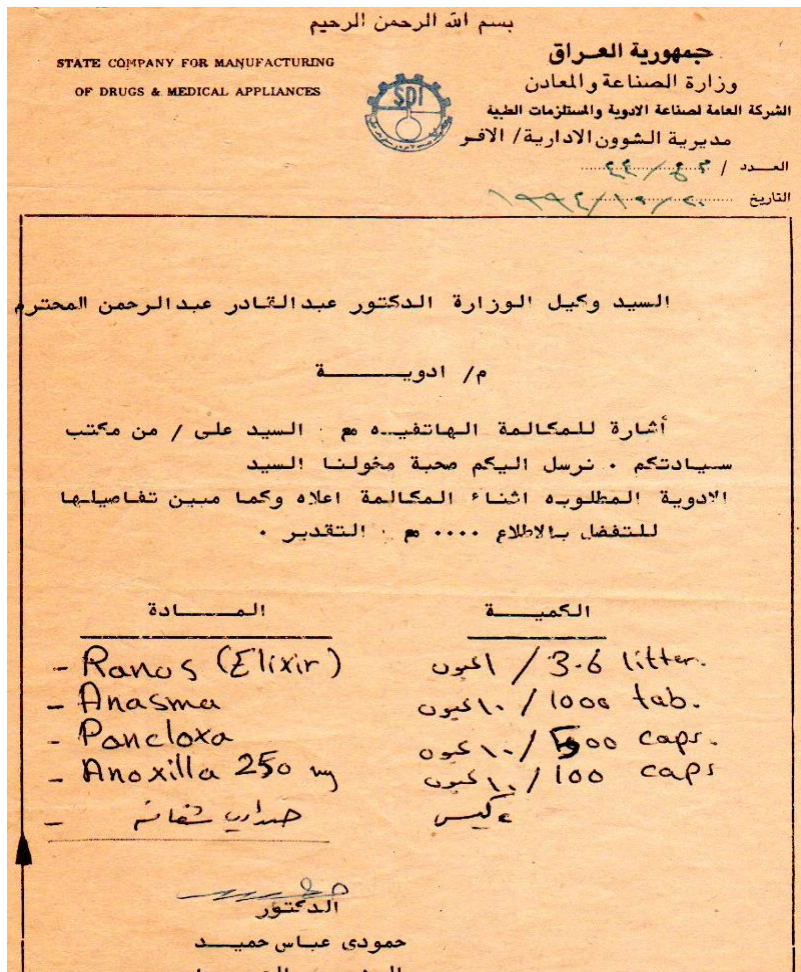 بسم الله الرحمن الرحيم
STATE COMPANY FOR MANUFACTURING
OF DRUGS & MEDICAL APPLIANCES
SDI
جمهورية العراق
وزارة الصناعة والمعادن
الشركة العامة لصناعة الادوية والمستلزمات الطبية
مديرية الشوون الادارية / الافر
العدد /
التاريخ ١٩٩٤/١٠/٢٠
السيد وكيل الوزارة الدكتور عبدالقادر عبدالرحمن المحترم
م/ ادويـــــة
أشارة للمكالمة الهاتفيه مع السيد على / من مكتب
سيادتكم . نرسل اليكم صحبة مخولنا السيد
الادوية المطلوبه اثناء المكالمة اعلاه وكما مبين تفاصيلها
للتفضل بالاطلاع .... مع التقدير .
المـــادة الكميـــة
- Ranos (Elixir) ١عبوة / 3.6 litter.
- Anasma ١٠عبوة / 1000 tab.
- Pancloxa ١٠عبوة / 500 caps.
- Anoxilla 250 mg ١٠عبوة / 100 caps
- كيس
الدكتور
حمودى عباس حميـــد